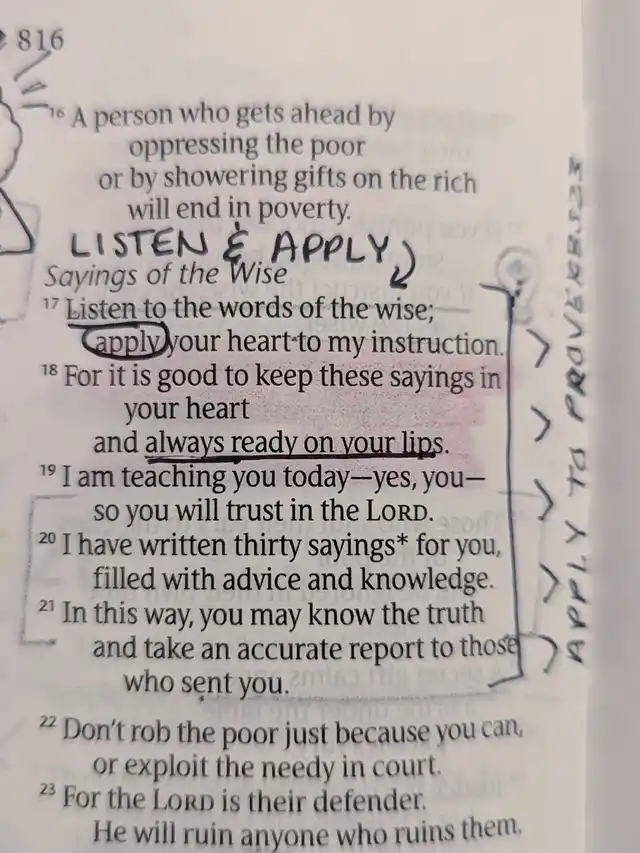 816
16 A person who gets ahead by
oppressing the poor
or by showering gifts on the rich
will end in poverty.
LISTEN & APPLY
Sayings of the Wise
17 Listen to the words of the wise;
apply your heart to my instruction.
18 For it is good to keep these sayings in
your heart
and always ready on your lips.
19 I am teaching you today—yes, you—
so you will trust in the LORD.
20 I have written thirty sayings* for you,
filled with advice and knowledge.
21 In this way, you may know the truth
and take an accurate report to those
who sent you.
22 Don't rob the poor just because you can,
or exploit the needy in court.
23 For the LORD is their defender.
He will ruin anyone who ruins them.
APPLY TO PROVERBS 23